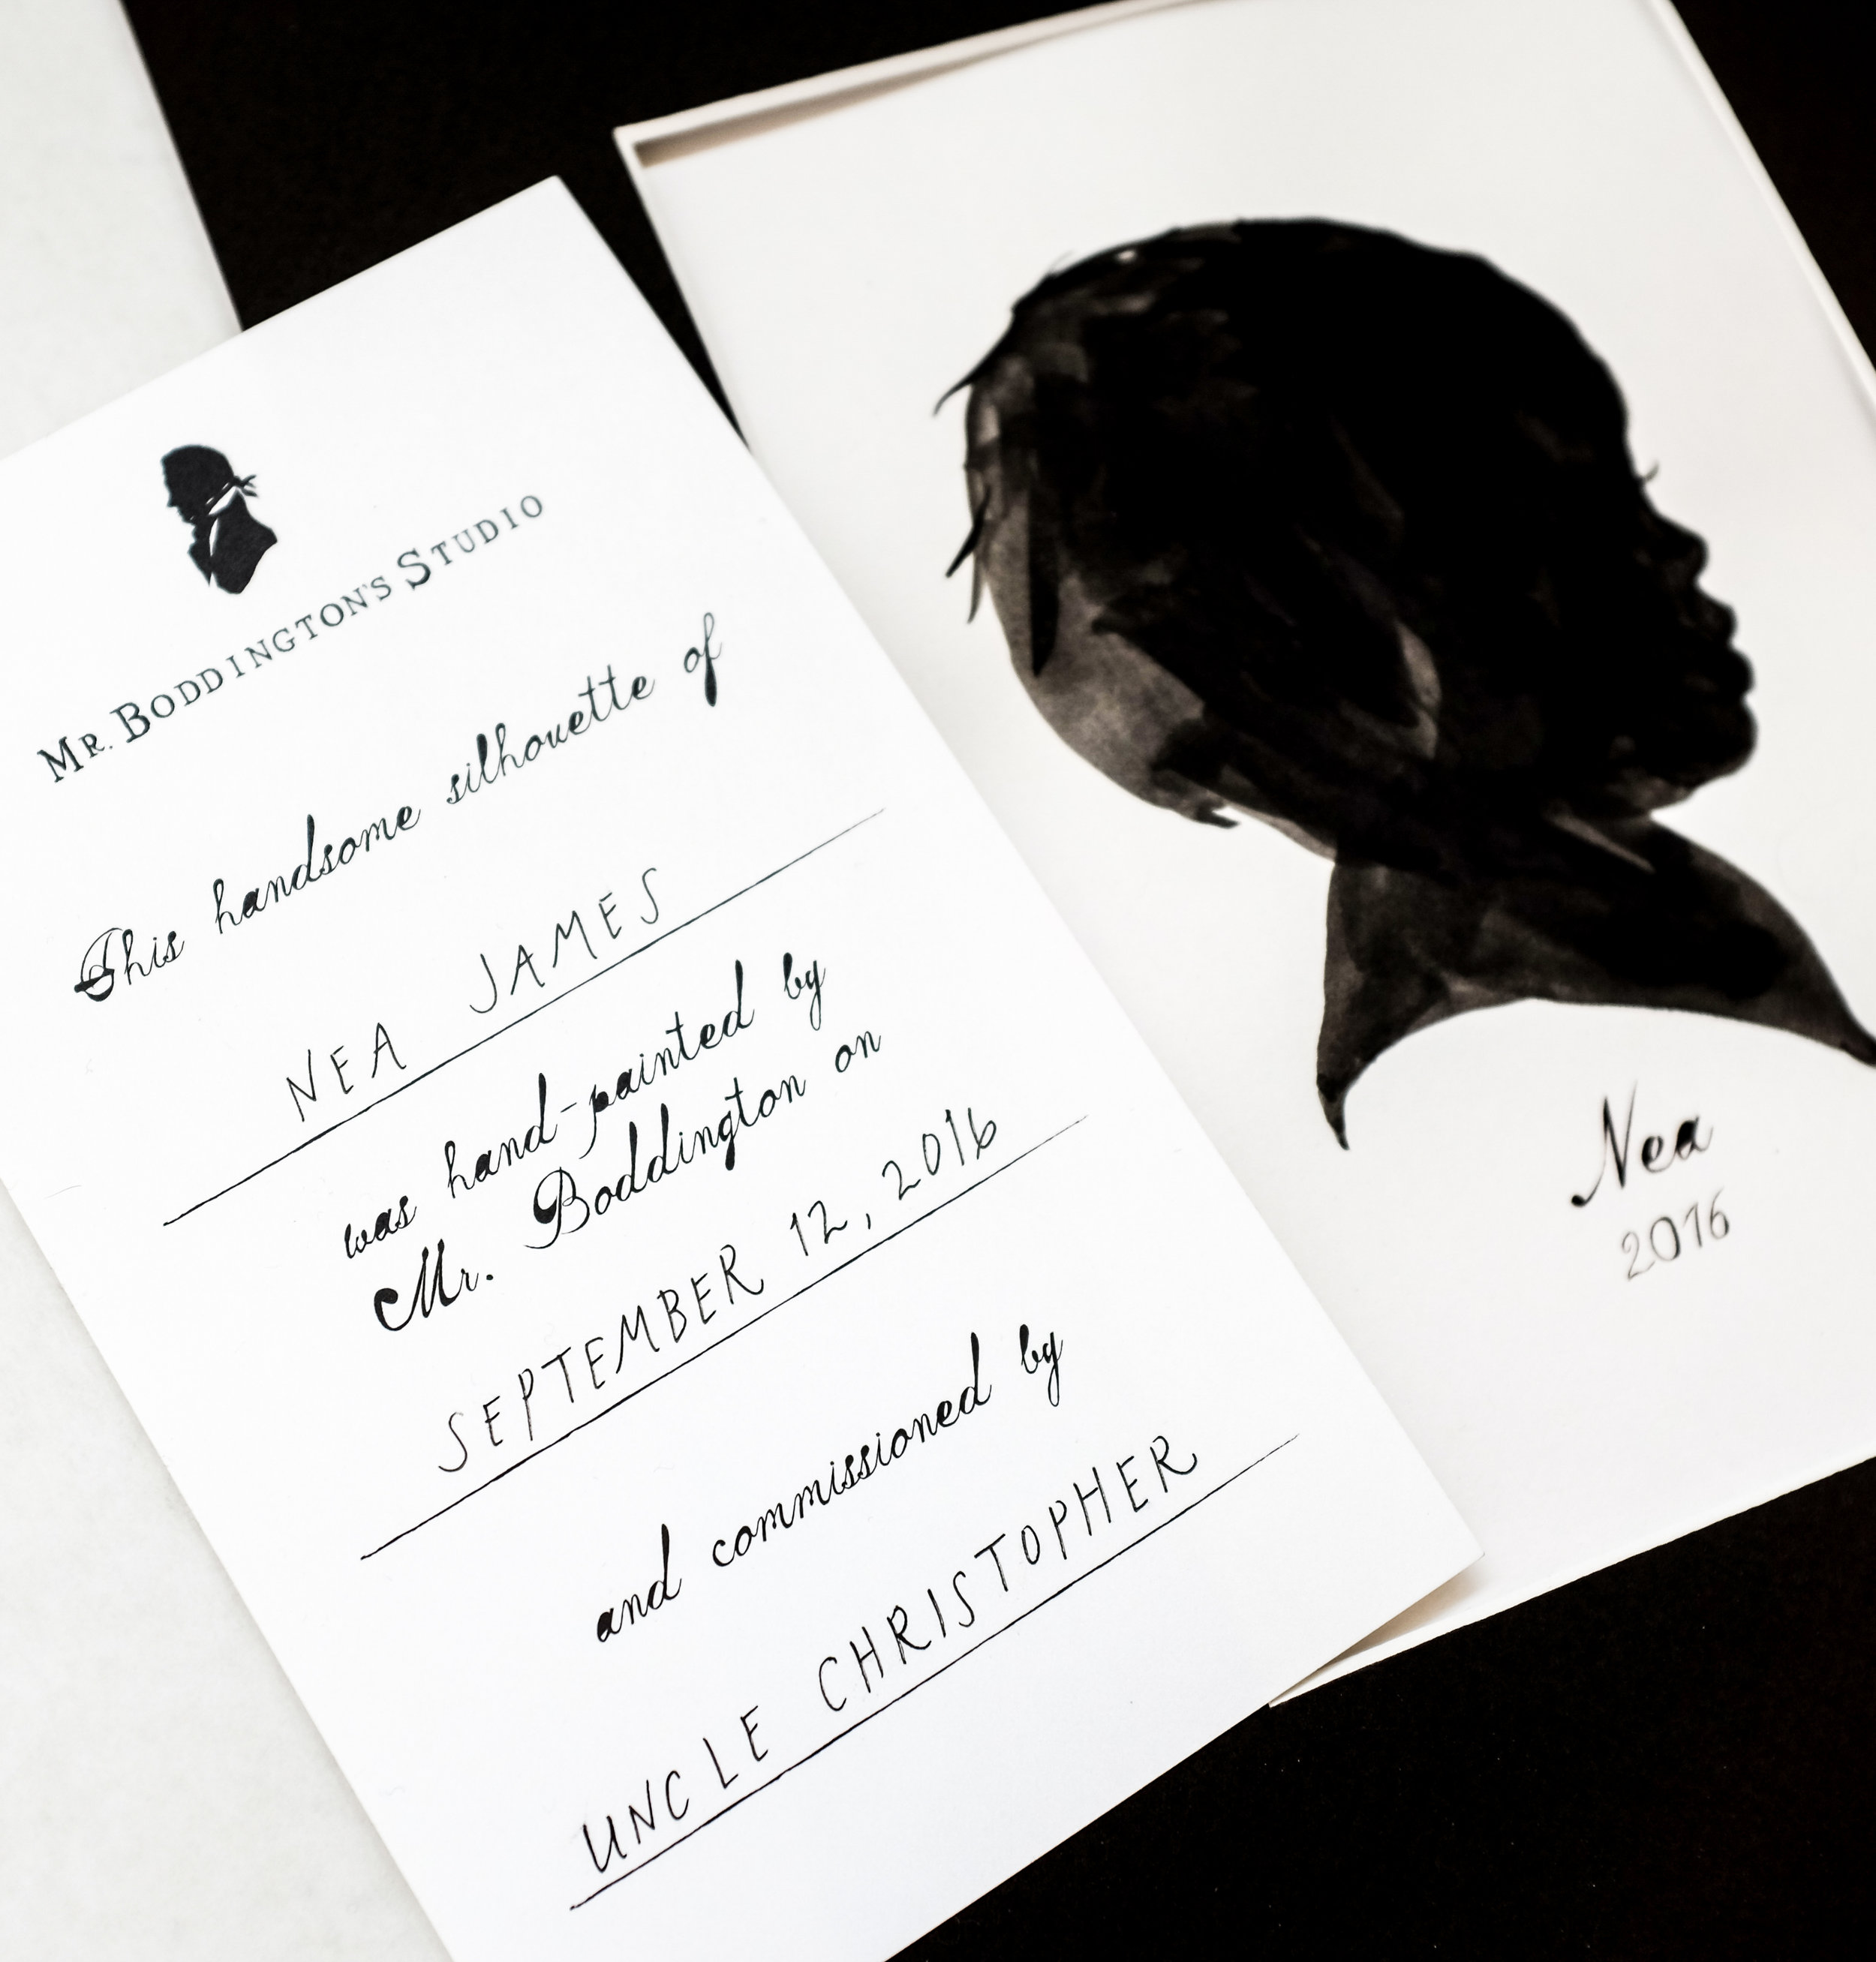 MR. BODDINGTON'S STUDIO
This handsome silhouette of
NEA JAMES
was hand-painted by
Mr. Boddington on
SEPTEMBER 12, 2016
and commissioned by
UNCLE CHRISTOPHER
Nea
2016